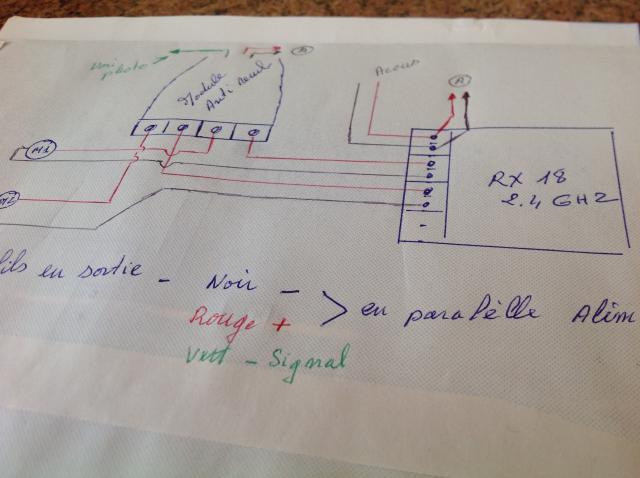 voir photo
A
Module
Anti Recul
Accus
A
M1
M2
RX 18
2.4 GHZ
fils en sortie - Noir -
Rouge +
Vert - Signal
en parallèlle Alim